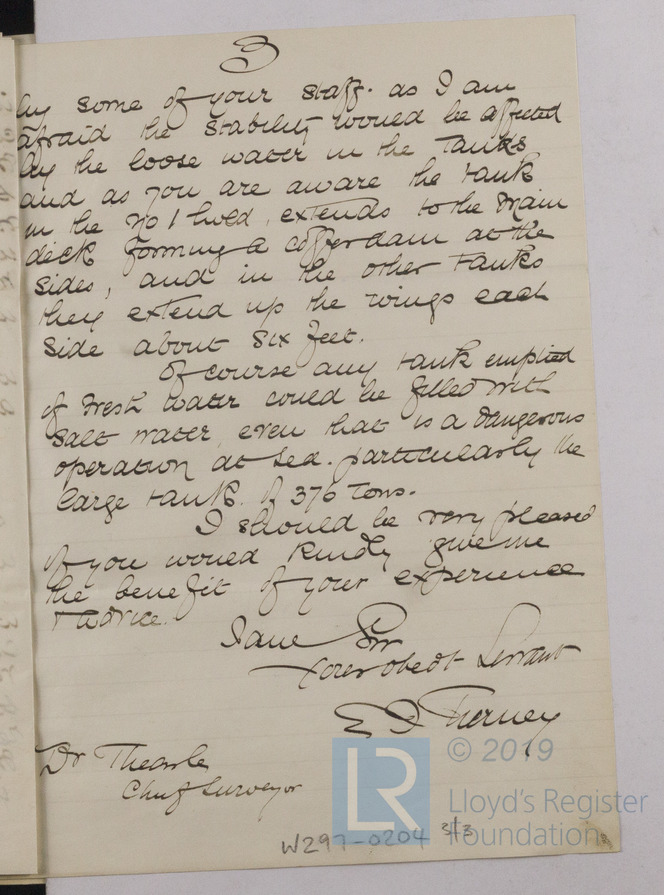 3
by some of your staff. as I am
afraid the stability would be affected
by the loose water in the tanks
and as you are aware the tank
in the No 1 hold, extends to the Main
deck forming a cofferdam at the
sides, and in the other tanks
they extend up the wings each
side about six feet.
Of course any tank emptied
of Fresh water could be filled with
salt water, even that is a dangerous
operation at sea. particularly the
large tank of 376 Tons.
I should be very pleased
if you would kindly give me
the benefit of your experience
+ advice.
I am Sir
Your obedt Servant
E J Tierney
Dr Thearle
Chief Surveyor
LR
© 2019
Lloyd's Register
Foundation
W297-0204 3/3